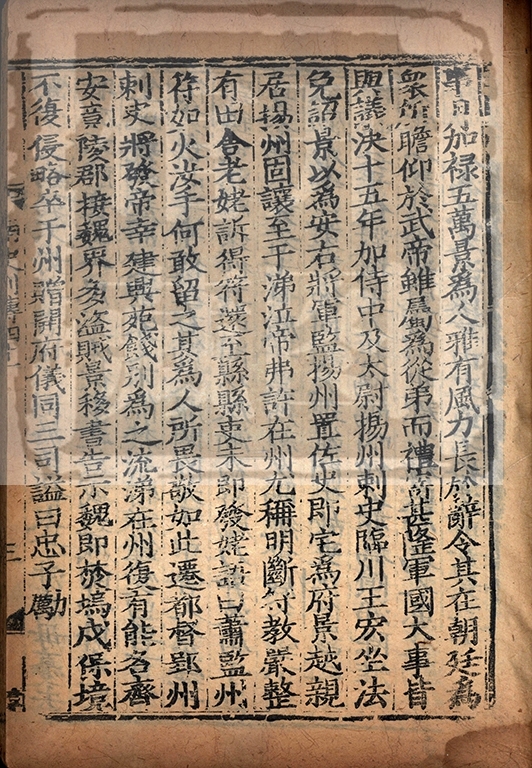 加祿五萬景爲人雅有風力長於辭令其在朝廷爲
衆所瞻仰於武帝雖屬爲從弟而禮寄甚隆軍國大事皆
與議決十五年加侍中及太尉揚州刺史臨川王宏坐法
免詔景以爲安右將軍監揚州置佐史即宅爲府景越親
居揚州固讓至于涕泣帝弗許在州尤稱明斷符教嚴整
有田舍老姥訴得符還至縣縣吏未即發姥語曰蕭監州
符如火汝手何敢留之其爲人所畏敬如此遷都督郢州
刺史將發帝幸建興苑餞別爲之流涕在州復有能名齊
安竟陵郡接魏界多盜賊景移書告示魏即於塢戍保境
不復侵略卒于州贈開府儀同三司謚曰忠子勱